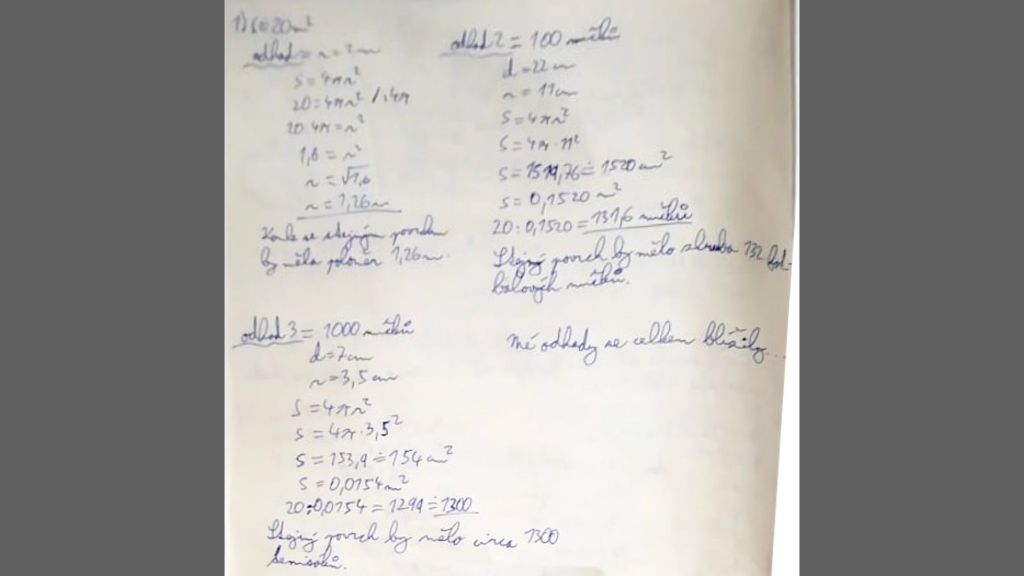 1) S = 20 m²
odhad = r = 2 m
S = 4πr²
20 = 4πr² / :4π
20 : 4π = r²
1,6 = r²
r = √1,6
r = 1,26 m
Koule se stejným povrchem
by měla poloměr 1,26 m.
odhad 2 = 100 míčků
d = 22 cm
r = 11 cm
S = 4πr²
S = 4π · 11²
S = 1519,76 ≐ 1520 cm²
S = 0,1520 m²
20 : 0,1520 = 131,6 míčků
Stejný povrch by mělo zhruba 132 fot-
balových míčků.
odhad 3 = 1000 míčků
d = 7 cm
r = 3,5 cm
S = 4πr²
S = 4π · 3,5²
S = 153,9 ≐ 154 cm²
S = 0,0154 m²
20 : 0,0154 = 1299 ≐ 1300
Stejný povrch by mělo circa 1300
tenisáků.
Mé odhady se celkem blížily...